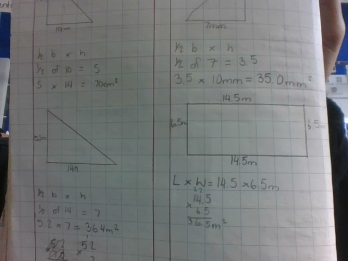 14m
7mm
½ b x h
½ of 10 = 5
5 x 14 = 70m²
½ b x h
½ of 7 = 3.5
3.5 x 10mm = 35.0mm²
14.5m
6.5m
6.5m
14.5m
14m
L x W = 14.5 x 6.5m
14.5
x 6.5
½ b x h
½ of 14 = 7
5.2 x 7 = 364m²
52
x